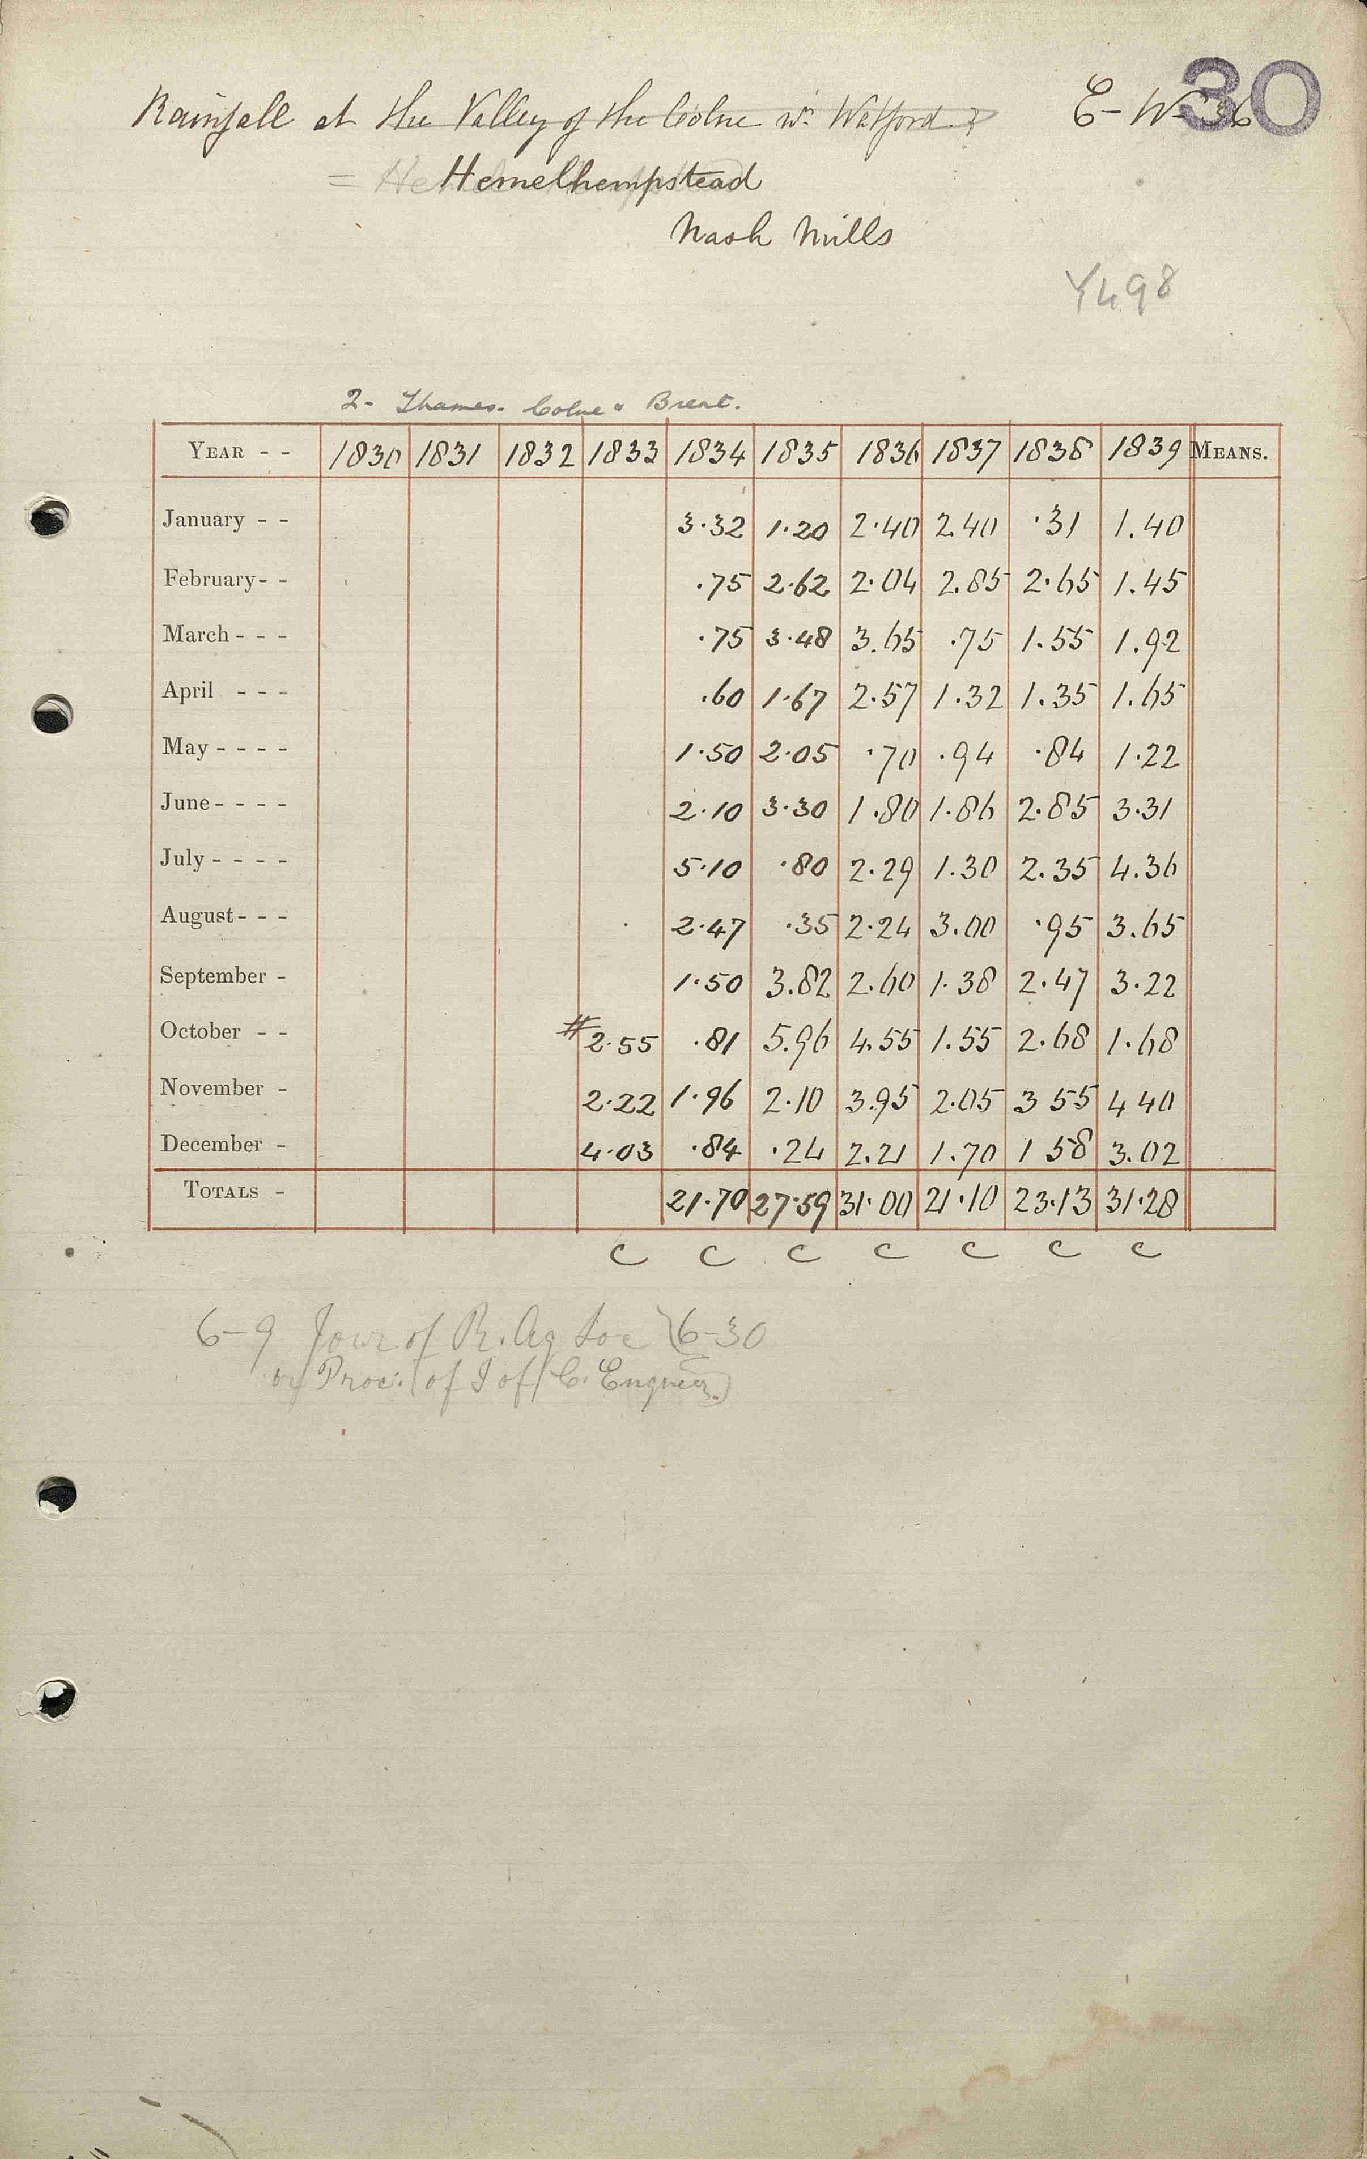 30
Rainfall at the Valley of the Colne nr. Watford ? E-W 36
= Hemelhempstead
Nash Mills
Y498
2- Thames. Colne & Brent.
YEAR - - 1830 1831 1832 1833 1834 1835 1836 1837 1838 1839 MEANS.
January - - 3.32 1.20 2.40 2.40 .31 1.40
February - - .75 2.62 2.04 2.85 2.65 1.45
March - - - .75 3.48 3.65 .75 1.55 1.92
April - - - .60 1.67 2.57 1.32 1.35 1.65
May - - - - 1.50 2.05 .70 .94 .84 1.22
June - - - - 2.10 3.30 1.80 1.86 2.85 3.31
July - - - - 5.10 .80 2.29 1.30 2.35 4.36
August - - - 2.47 .35 2.24 3.00 .95 3.65
September - 1.50 3.82 2.60 1.38 2.47 3.22
October - - #2.55 .81 5.96 4.55 1.55 2.68 1.68
November - 2.22 1.96 2.10 3.95 2.05 3 55 4 40
December - 4.03 .84 .24 2.21 1.70 1 58 3.02
TOTALS - 21.70 27.59 31.00 21.10 23.13 31.28
C C C C C C C
6-9 Jour of R. Ag Soc 6-30
or Proc. of I of C. Engineers)